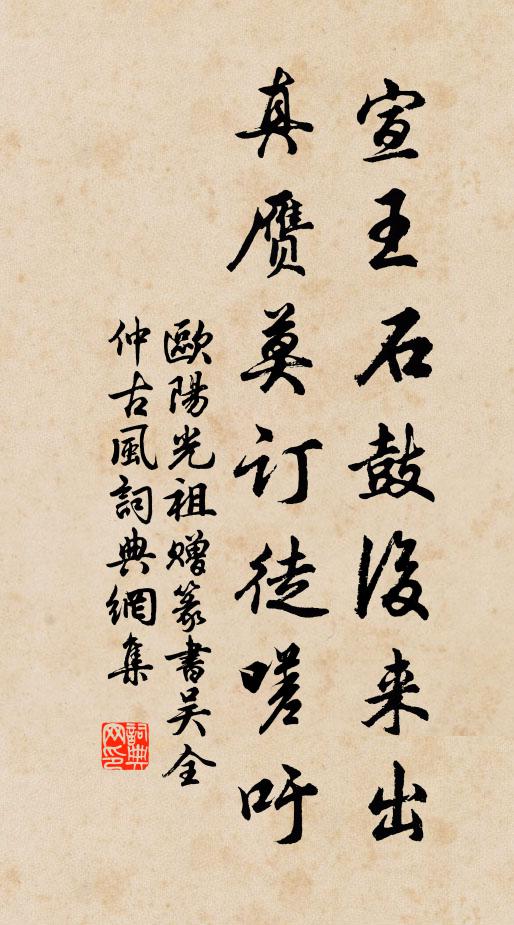 宣王石鼓後来出
真赝莫订徒嗟吁
歐陽光祖赠篆書吴全
仲古風詞典網集
詞典网印